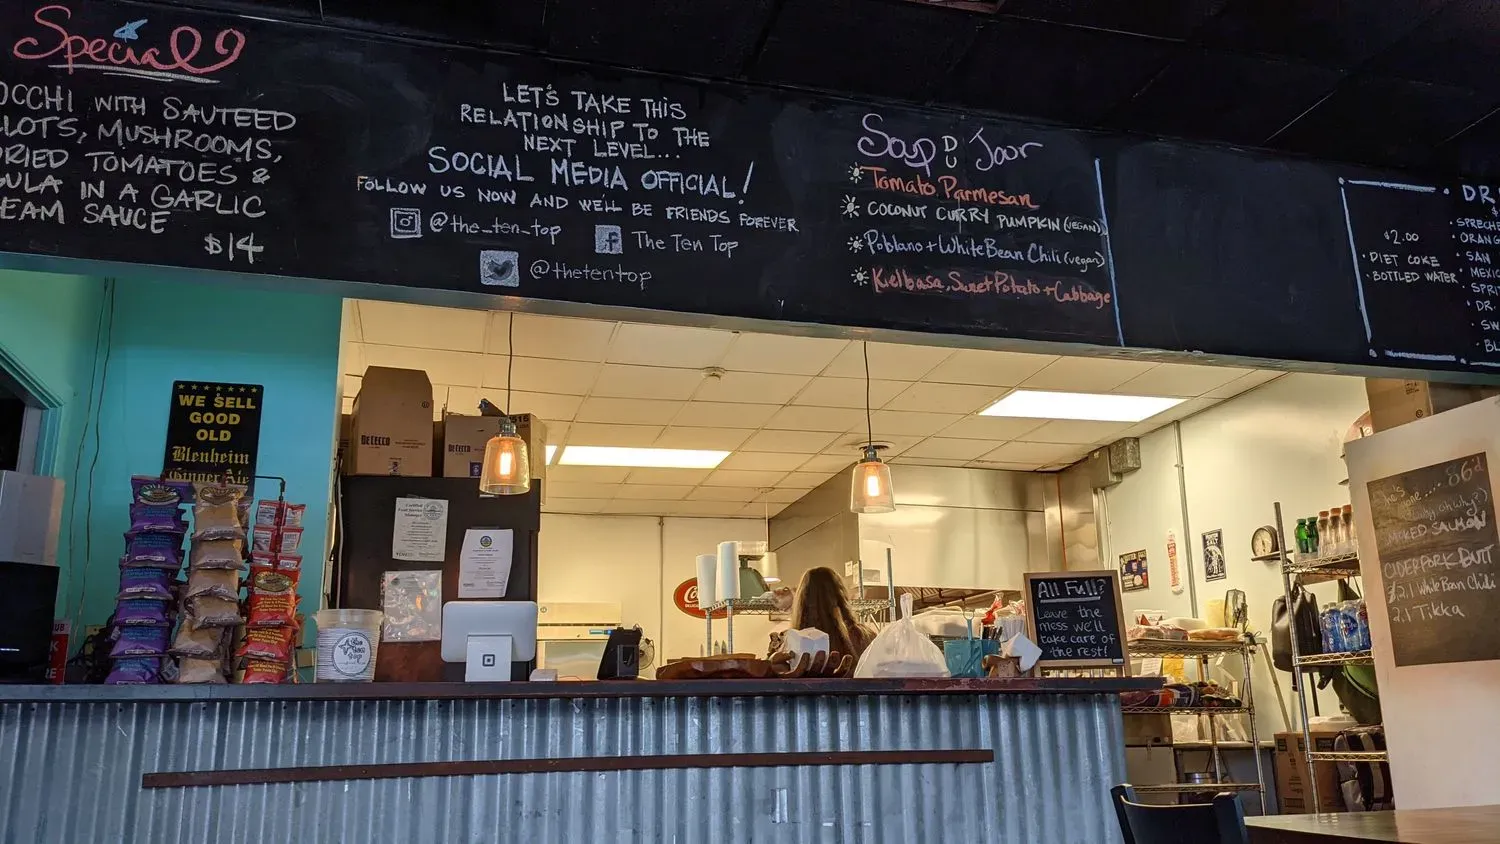 Special
OCCHI WITH SAUTEED
LOTS, MUSHROOMS,
DRIED TOMATOES &
GULA IN A GARLIC
EAM SAUCE
$14
LET'S TAKE THIS
RELATIONSHIP TO THE
NEXT LEVEL...
SOCIAL MEDIA OFFICIAL!
FOLLOW US NOW AND WE'LL BE FRIENDS FOREVER
@the_ten_top
The Ten Top
@thetentop
Soup DU Joor
Tomato Parmesan
COCONUT CURRY PUMPKIN (VEGAN)
Poblano + White Bean Chili (vegan)
Kielbasa, Sweet Potato + Cabbage
$2.00
DIET COKE
BOTTLED WATER
DR
SPRECHE
ORANG
SAN
MEXIC
SPRIT
DR.
SW
BL
WE SELL
GOOD
OLD
Blenheim
Ginger Ale
DE CECCO
DE CECCO
Certified
Food Service
Manager
the
ten
top
Co
All Full?
Leave the
mess we'll
take care of
the rest!
86'd
SMOKED SALMON
CIDER PORK BUTT
2.1 White Bean Chili
2.1 Tikka